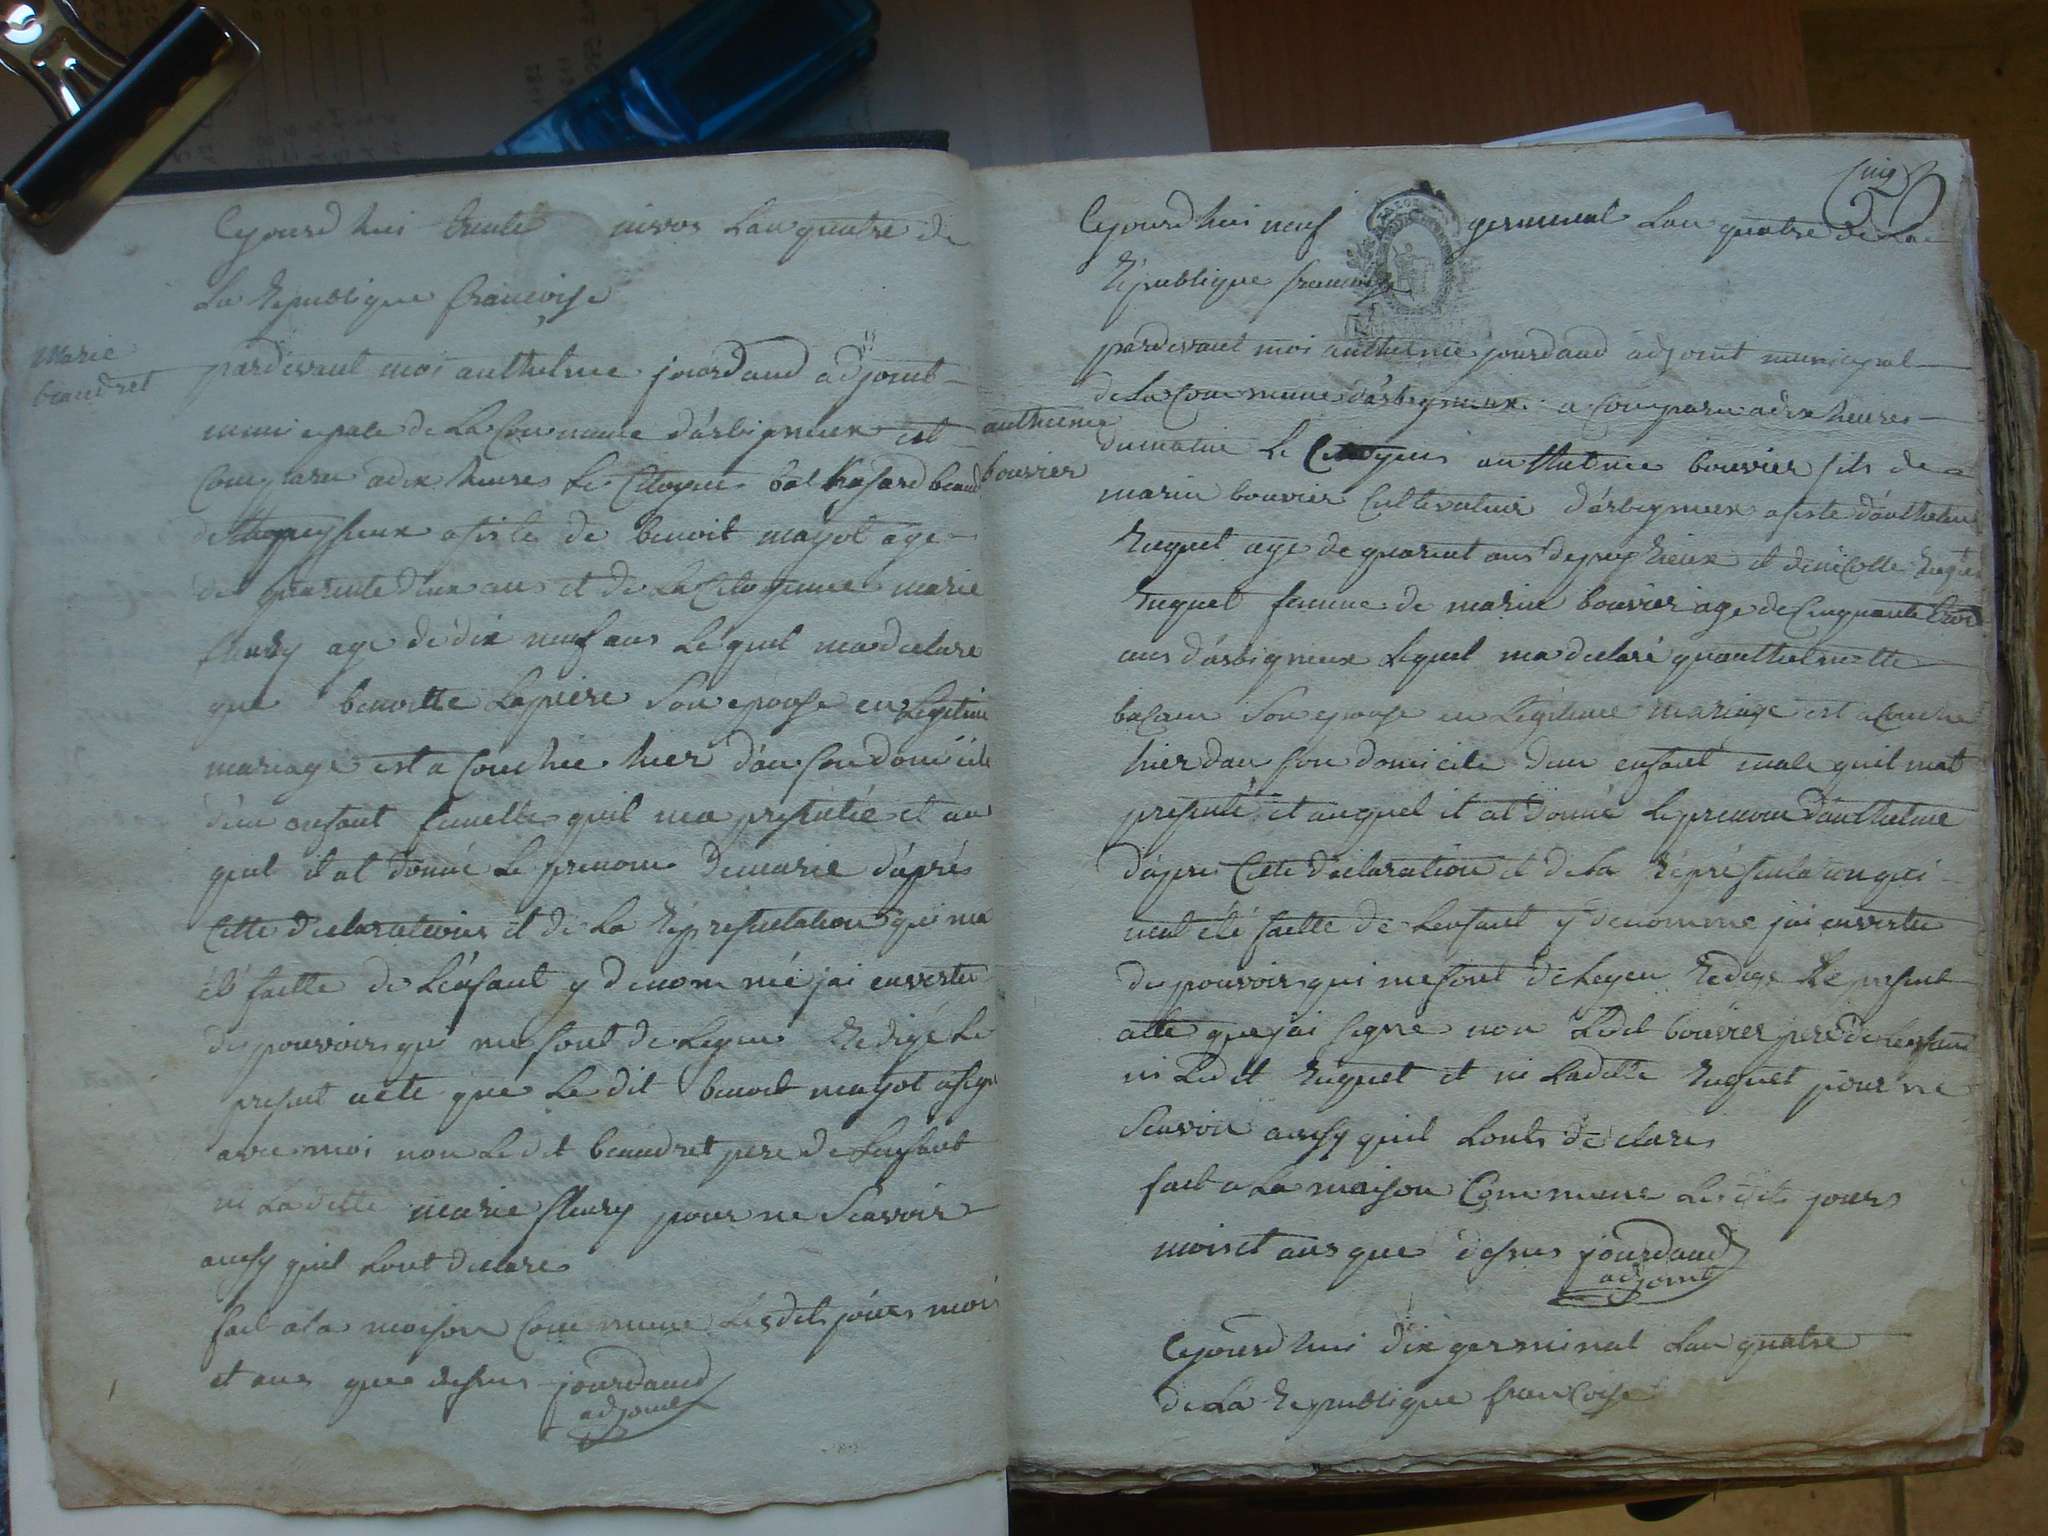 Cejourd hui trente nivos Lan quatre de
La République francoise
Marie
beaudret
pardevant moi anthelme jourdand adjoint
municipale de La Commune d'arbignieux est
Comparu a dix heures Le Citoyen balthasard beaud
de asisté de benoit mayot age
de quarente deux ans et de La Citoyenne marie
fleury age de dix neuf ans Lequel ma declare
que benoitte Lapiere son epouse en Legitime
mariage est acouchée hier dan son domicile
d'un enfant femelle quil ma presentée et au
quel il at donné Le prenom de marie d'aprés
Cette declaration et de La Représentation qui ma
été faitte de L'énfant y denommé jai en vertu
des pouvoirs qui me sont delegue Redigé Le
present acte que Le dit benoit mayot a signe
avec moi non Ledit beaudret pere de Lenfant
ni La ditte marie fleury pour ne Scavoir
ausy quil Lont declare
fait a La maison Commune Lesdits jours mois
et ans que desus jourdand
adjoint
Cinq
5
Cejourd hui neuf germinal Lan quatre de La
République francoise
pardevant moi anthelme jourdand adjoint municipal
de La Commune d'arbignieux a Comparu a dix heures
anthelme
bouvier
du matin Le Citoyen anthelme bouvier fils de
marin bouvier Cultivateur d'arbignieux asisté d'anthelme
huguet age de quarent ans de et de nicolle
huguet femme de marin bouvier age de Cinquante trois
ans d'arbignieux Lequel ma declaré quanthelmette
son epouse en Légitime mariage est acouche
hier dan son domicile dun enfant male quil mat
presenté et auquel il at donné Le prenom d'anthelme
d'apre Cette declaration et de La Représentation qui
mat été faitte de Lenfant y denomme jai en vertu
des pouvoirs qui me sont delegeu Redige Le present
atte que jai signe non Ledit bouvier pere de lenfant
ni Ledit huguet et ni Laditte huguet pour ne
Scavoir ausy quil Lonts déclares
fait a La maison Commune Lesdits jours
mois et ans que desus jourdand
adjoint
Cejourd hui dix germinal Lan quatre
de La République francoise